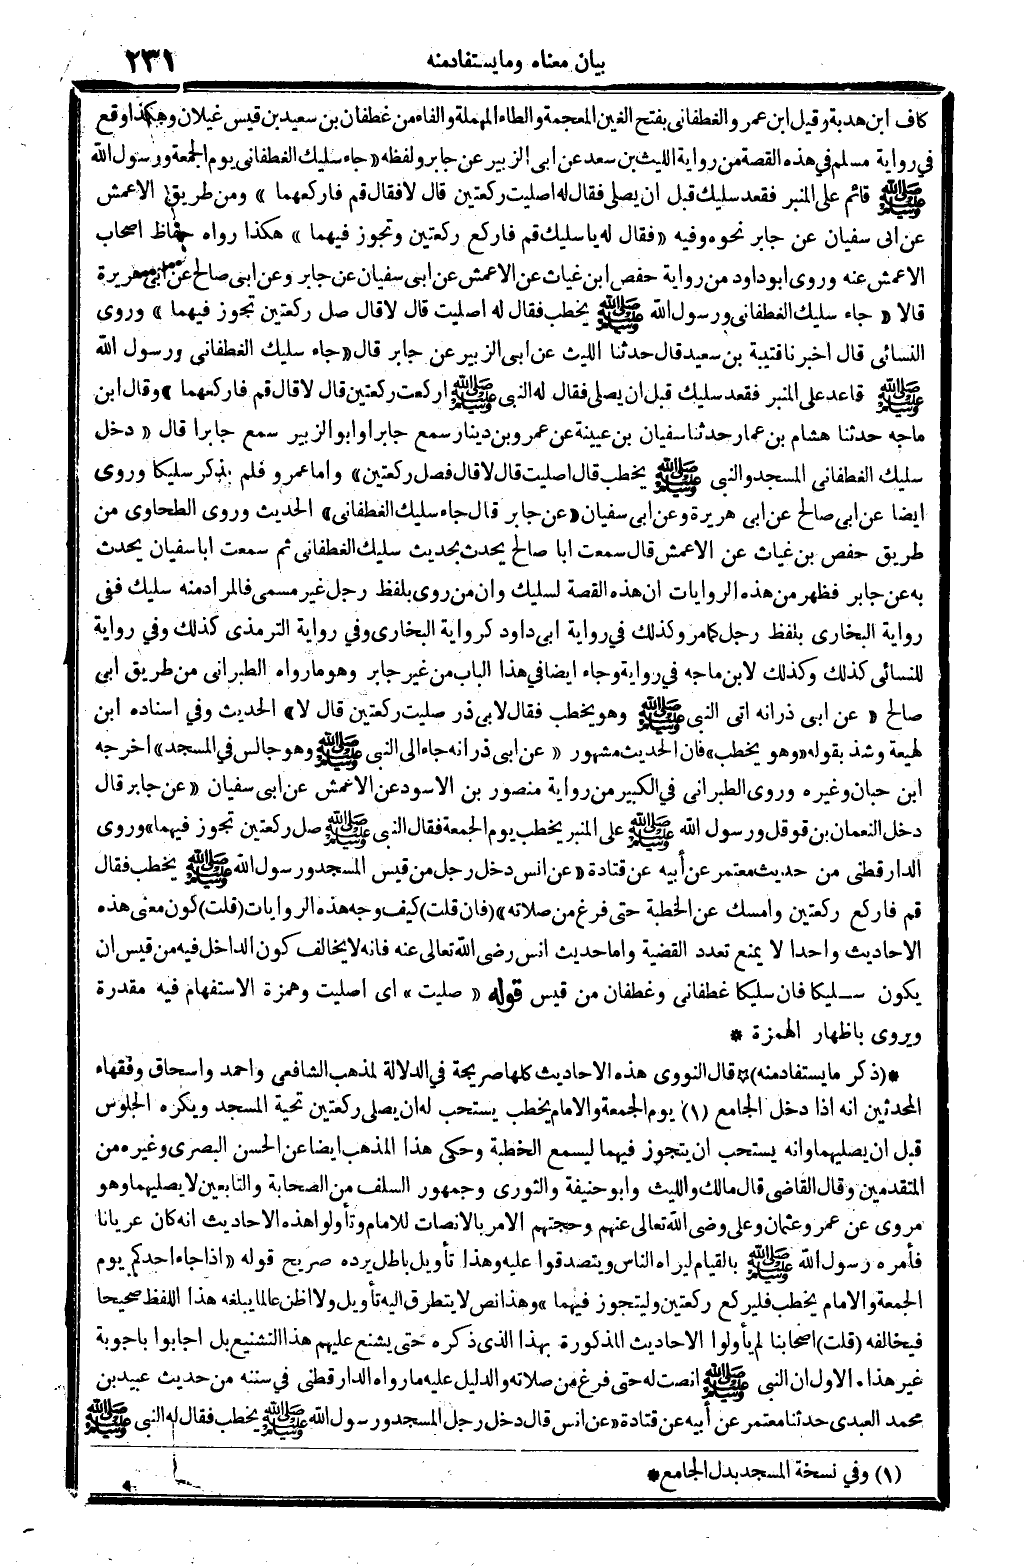 بيان معناه ومايستفادمنه ٢٣١
كاف ابن هدبة وقيل ابن عمرو الغطفانى بفتح الغين المعجمة والطاء المهملة والفاء من غطفان بن سعيد بن قيس غيلان وهكذا وقع
في رواية مسلم في هذه القصة من رواية الليث بن سعد عن ابى الزبير عن جابر ولفظه «جاء سليك الغطفانى يوم الجمعة ورسول الله
ﷺ قائم على المنبر فقعد سليك قبل ان يصلى فقال له اصليت ركعتين قال لا فقال قم فاركعهما» ومن طريق الاعمش
عن ابى سفيان عن جابر نحوه وفيه «فقال له ياسليك قم فاركع ركعتين وتجوز فيهما» هكذا رواه حفاظ اصحاب
الاعمش عنه وروى ابو داود من رواية حفص ابن غياث عن الاعمش عن ابى سفيان عن جابر وعن ابى صالح عن ابى هريرة
قالا «جاء سليك الغطفانى ورسول الله ﷺ يخطب فقال له اصليت قال لا قال صل ركعتين تجوز فيهما» وروى
النسائى قال اخبرنا قتيبة بن سعيد قال حدثنا الليث عن ابى الزبير عن جابر قال «جاء سليك الغطفانى ورسول الله
ﷺ قاعد على المنبر فقعد سليك قبل ان يصلى فقال له النبى ﷺ اركعت ركعتين قال لا قال قم فاركعهما» وقال ابن
ماجه حدثنا هشام بن عمار حدثنا سفيان بن عيينة عن عمرو بن دينار سمع جابرا وابو الزبير سمع جابرا قال «دخل
سليك الغطفانى المسجد والنبى ﷺ يخطب قال اصليت قال لا قال فصل ركعتين» واما عمرو فلم يذكر سليكا وروى
ايضا عن ابى صالح عن ابى هريرة وعن ابى سفيان «عن جابر قال جاء سليك الغطفانى» الحديث وروى الطحاوى من
طريق حفص بن غياث عن الاعمش قال سمعت ابا صالح يحدث بحديث سليك الغطفانى ثم سمعت ابا سفيان يحدث
به عن جابر فظهر من هذه الروايات ان هذه القصة لسليك وان من روى بلفظ رجل غير مسمى فالمراد منه سليك ففى
رواية البخارى بلفظ رجل كما مر وكذلك في رواية ابى داود كرواية البخارى وفي رواية الترمذى كذلك وفي رواية
للنسائى كذلك وكذلك لابن ماجه في رواية وجاء ايضا في هذا الباب من غير جابر وهو ما رواه الطبرانى من طريق ابى
صالح «عن ابى ذر انه اتى النبى ﷺ وهو يخطب فقال لابى ذر صليت ركعتين قال لا» الحديث وفي اسناده ابن
لهيعة وشذ بقوله «وهو يخطب» فان الحديث مشهور «عن ابى ذر انه جاء الى النبى ﷺ وهو جالس في المسجد» اخرجه
ابن حبان وغيره وروى الطبرانى في الكبير من رواية منصور بن الاسود عن الاعمش عن ابى سفيان «عن جابر قال
دخل النعمان بن قوقل ورسول الله ﷺ على المنبر يخطب يوم الجمعة فقال النبى ﷺ صل ركعتين تجوز فيهما» وروى
الدارقطنى من حديث معتمر عن أبيه عن قتادة «عن انس دخل رجل من قيس المسجد ورسول الله ﷺ يخطب فقال
قم فاركع ركعتين وامسك عن الخطبة حتى فرغ من صلاته» (فان قلت) كيف وجه هذه الروايات (قلت) كون معنى هذه
الاحاديث واحدا لا يمنع تعدد القضية واما حديث انس رضى الله تعالى عنه فانه لا يخالف كون الداخل فيه من قيس ان
يكون سليكا فان سليكا غطفانى وغطفان من قيس قوله «صليت» اى اصليت وهمزة الاستفهام فيه مقدرة
ويروى باظهار الهمزة *
*(ذكر ما يستفادمنه)* قال النووى هذه الاحاديث كلها صريحة في الدلالة لمذهب الشافعى واحمد واسحاق وفقهاء
المحدثين انه اذا دخل الجامع (١) يوم الجمعة والامام يخطب يستحب له ان يصلى ركعتين تحية المسجد ويكره الجلوس
قبل ان يصليهما وانه يستحب ان يتجوز فيهما ليسمع الخطبة وحكى هذا المذهب ايضا عن الحسن البصرى وغيره من
المتقدمين وقال القاضى قال مالك والليث وابو حنيفة والثورى وجمهور السلف من الصحابة والتابعين لا يصليهما وهو
مروى عن عمر وعثمان وعلى رضى الله تعالى عنهم وحجتهم الامر بالانصات للامام وتأولوا هذه الاحاديث انه كان عريانا
فأمره رسول الله ﷺ بالقيام ليراه الناس ويتصدقوا عليه وهذا تأويل باطل يرده صريح قوله «اذا جاء احدكم يوم
الجمعة والامام يخطب فليركع ركعتين وليتجوز فيهما» وهذا نص لا يتطرق اليه تأويل ولا اظن عالما يبلغه هذا اللفظ صحيحا
فيخالفه (قلت) اصحابنا لم يأولوا الاحاديث المذكورة بهذا الذى ذكره حتى يشنع عليهم هذا التشنيع بل اجابوا باجوبة
غير هذا. الاول ان النبى ﷺ انصت له حتى فرغ من صلاته والدليل عليه ما رواه الدارقطنى في سننه من حديث عبيد بن
محمد العبدى حدثنا معتمر عن أبيه عن قتادة «عن انس قال دخل رجل المسجد ورسول الله ﷺ يخطب فقال له النبى ﷺ
(١) وفي نسخة المسجد بدل الجامع *